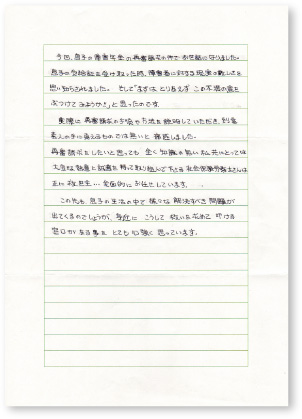 今回、息子の障害年金の再審請求の件でお世話になりました。
息子の受給証を受け取った時、障害者に対する現実の厳しさを
思い知らされました。そして“まずは、とりあえず この不満の霧を
ぶつけてみようか！”と思ったのです。
実際に再審請求のお話や方法を説明していただき、到底
素人の手に負えるものでは無いと確信しました。
再審請求をしたいと思っても 全く知識の無い私共にとっては
大きな熱意と誠意を持って取り組んで下さる社会保険労務士さんは
正に救世主… 全面的にお任せしています。
この先も息子の生活の中で様々な解決すべき問題が
出てくるのでしょうが、身近に こうして救いを求めて叩ける
窓口がある事を とても心強く思っています。